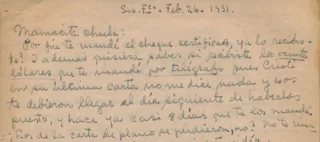 Sn. Fco. Feb. 26. 1931.
Mamacita chula:
Por fin te mandé el cheque certificado, ya lo recibis-
te? I ademas quisiera saber si recibiste los veinte
dólares que te mandé por telégrafo pues Cristi
en su última carta no me dice nada y esos
te debieron llegar al día siguiente de haberlos
puesto, y hace ya casi 8 dias que te los mandé.
Los de la carta de plano se perdieron, no? No te